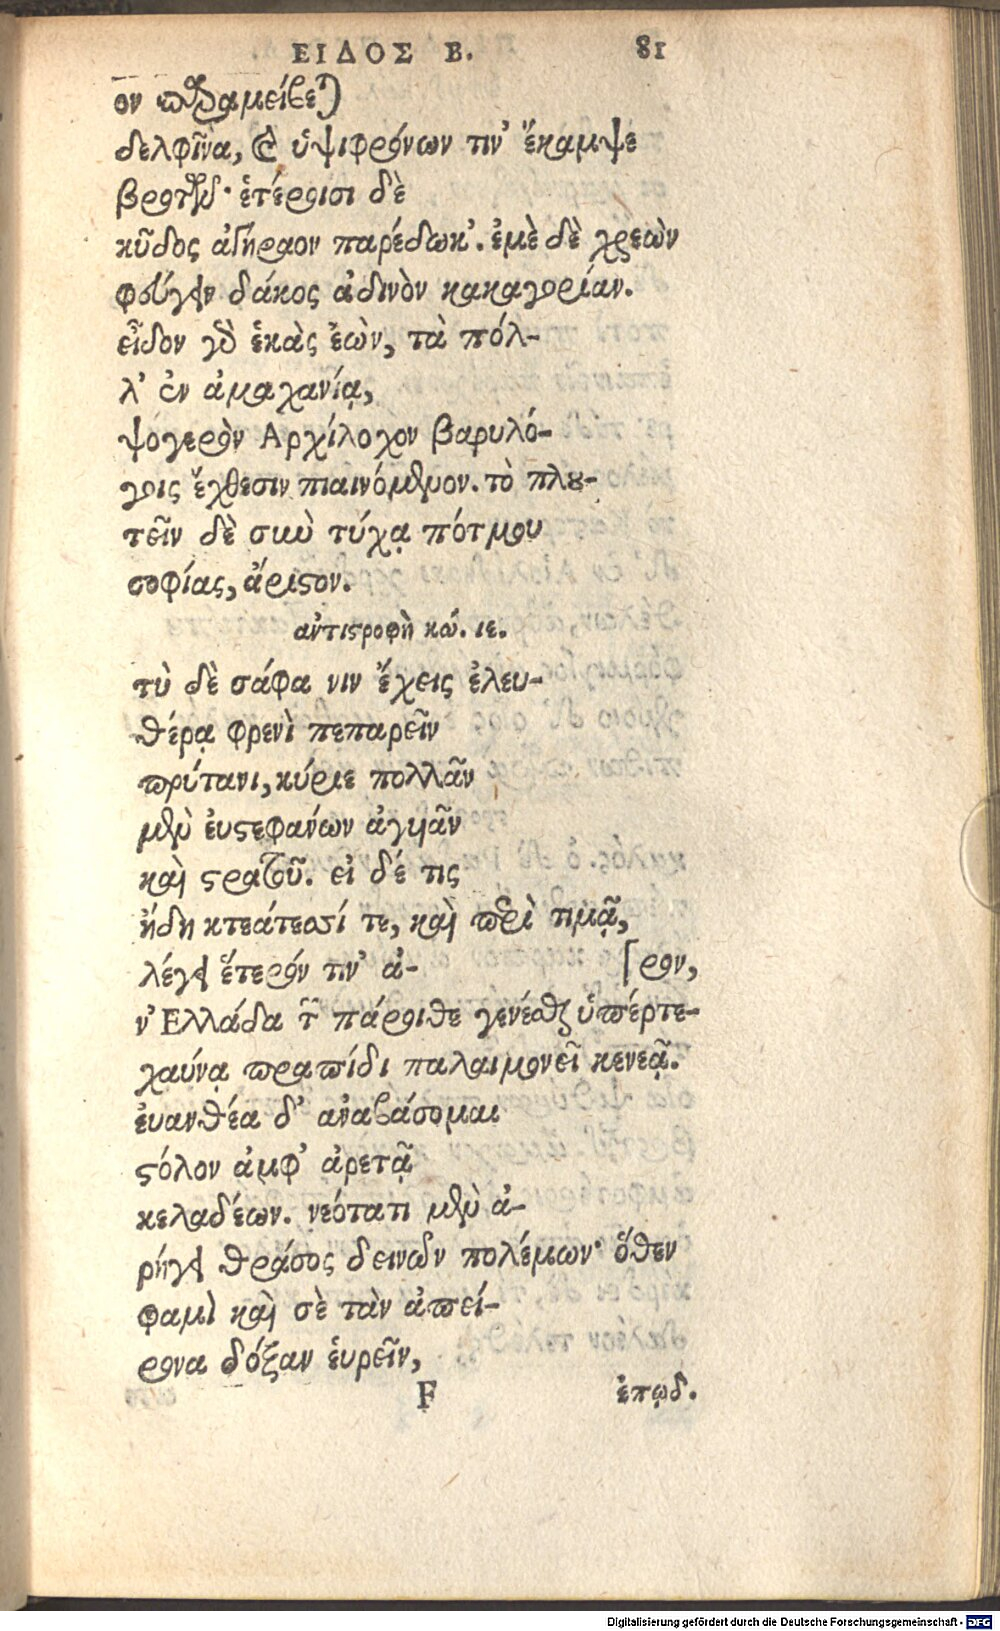 ΕΙΔΟΣ Β. 81
ον παραμείβεται
δελφῖνα, καὶ ὑψιφρόνων τιν' ἔκαμψε
βροτῶν· ἑτέροισι δὲ
κῦδος ἀγήραον παρέδωκ'. ἐμὲ δὲ χρεὼν
φεύγειν δάκος ἀδινὸν κακαγορίαν.
εἶδον γὰρ ἑκὰς ἐὼν, τὰ πόλ-
λ' ἐν ἀμαχανίᾳ,
ψογερὸν Αρχίλοχον βαρυλό-
γοις ἔχθεσιν πιαινόμενον. τὸ πλου-
τεῖν δὲ σὺν τύχᾳ πότμου
σοφίας, ἄριστον.
ἀντιστροφὴ κώ. ιε.
τὺ δὲ σάφα νιν ἔχεις ἐλευ-
θέρᾳ φρενὶ πεπαρεῖν
πρύτανι, κύριε πολλᾶν
μὲν ἐυστεφάνων ἀγυιᾶν
καὶ στρατοῦ. εἰ δέ τις
ἤδη κτεάτεσσί τε, καὶ περὶ τιμᾷ,
λέγει ἕτερόν τιν' ἀ- [ρον,
ν' Ελλάδα τῶν πάροιθε γενέσθαι ὑπέρτε-
χαύνᾳ πραπίδι παλαιμονεῖ κενεᾷ.
ἐυανθέα δ' ἀναβάσομαι
στόλον ἀμφ' ἀρετᾷ
κελαδέων. νεότατι μὲν ἀ-
ρήγει θράσος δεινῶν πολέμων· ὅθεν
φαμὶ καὶ σὲ τὰν ἀπεί-
ρονα δόξαν ἑυρεῖν,
F ἐπῳδ.
Digitalisierung gefördert durch die Deutsche Forschungsgemeinschaft - DFG